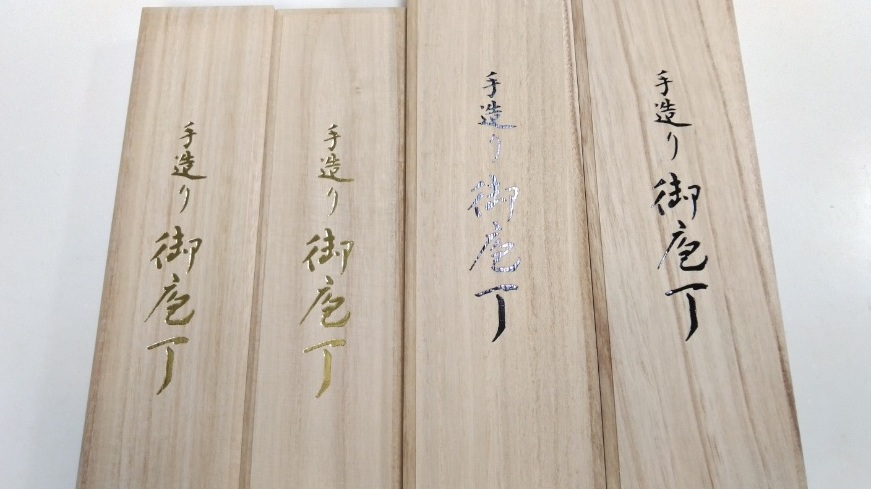 手造り御庖丁
手造り御庖丁
手造り御庖丁
手造り御庖丁